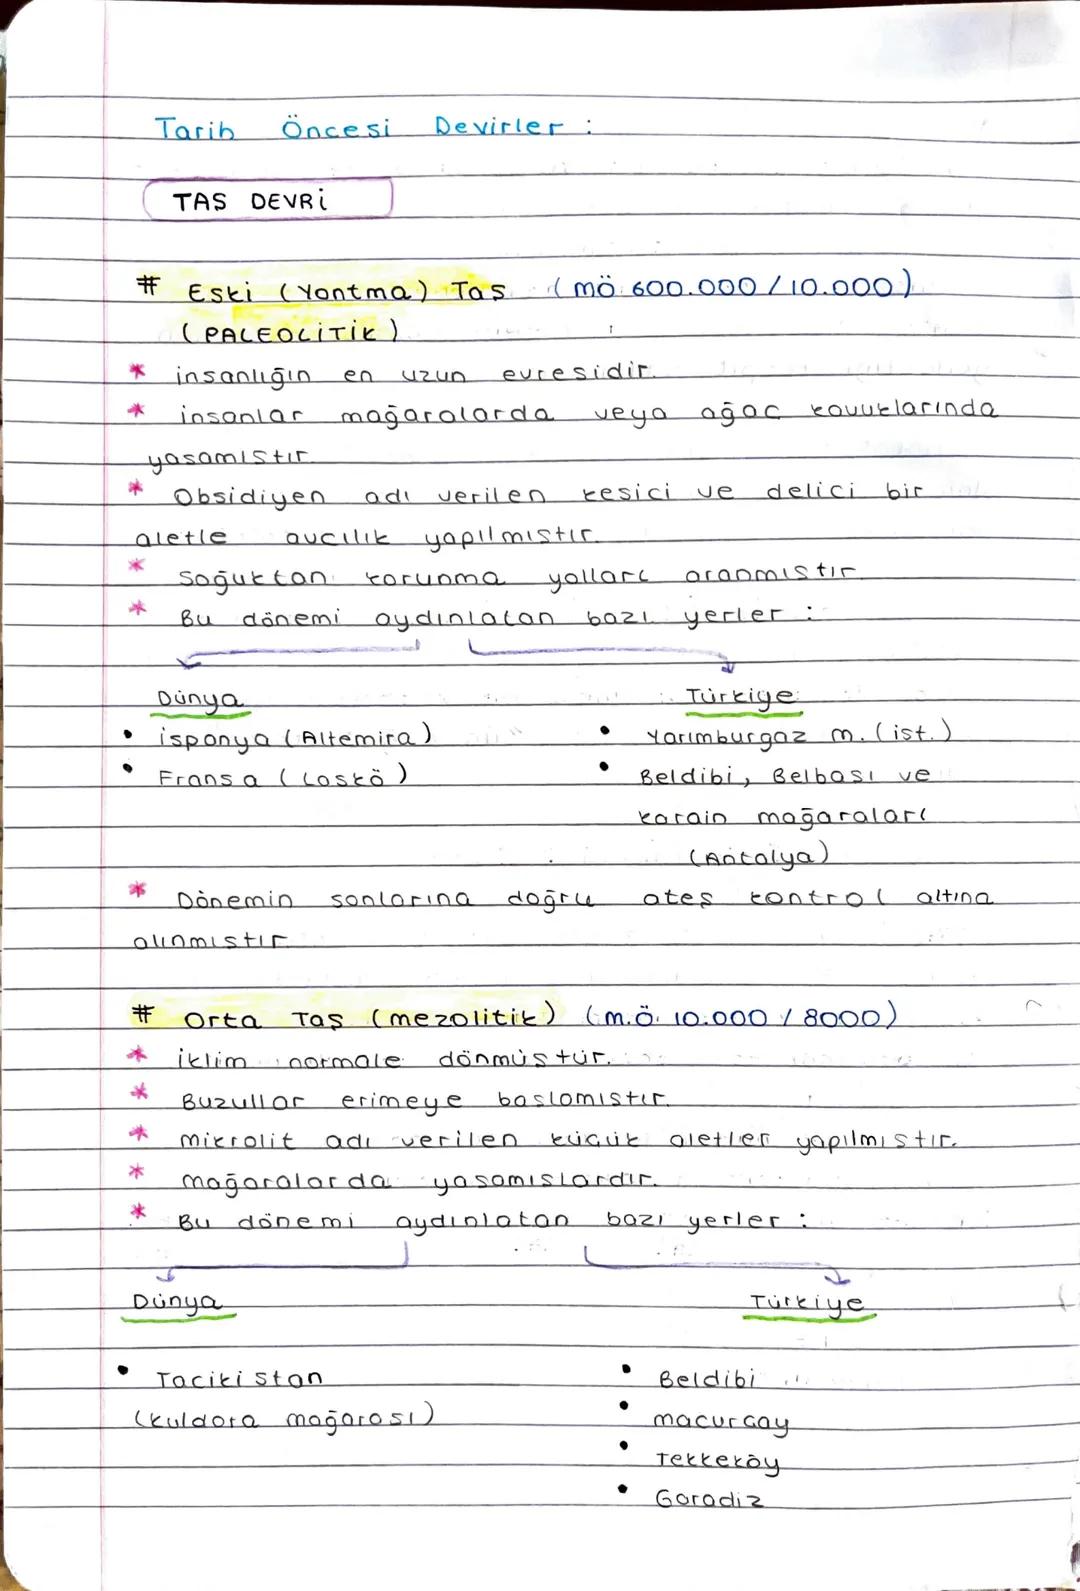 Tarih Öncesi Devirler :
TAS DEVRİ
# Eski (Yontma) Tas (mö 600.000 / 10.000)
(PALEOLİTİK)
* insanlığın en uzun evresidir.
* insanlar mağaralarda veya ağac kovuklarında
yasamıstır.
* Obsidiyen adı verilen kesici ve delici bir
aletle avcılık yapılmıstır.
* Soğuktan korunma yolları aranmıstır.
* Bu dönemi aydınlatan bazı yerler :
Dünya Türkiye
• ispanya (Altemira) • Yarımburgaz m. (ist.)
• Fransa (Laskö) • Beldibi, Belbası ve
karain mağaraları
(Antalya)
* Dönemin sonlarına doğru ateş kontrol altına
alınmıstır
# Orta Taş (mezolitik) (m.ö. 10.000 / 8000)
* İklim normale dönmüstür.
* Buzullar erimeye baslamıstır.
* mikrolit adı verilen kücük aletler yapılmıstır.
* mağaralarda yasamıslardır.
* Bu dönemi aydınlatan bazı yerler :
Dünya Türkiye
• Tacikistan • Beldibi
(kuldara mağarası) • macurcay
• Tekkeköy
• Goradiz